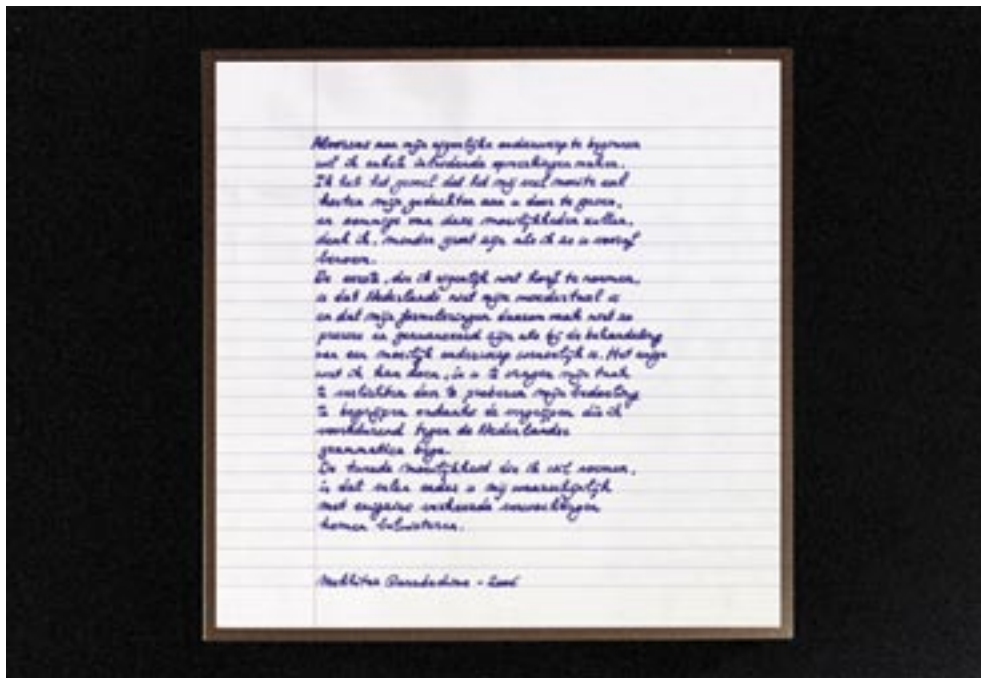 Alvorens aan mijn eigenlijke onderwerp te beginnen
wil ik enkele inleidende opmerkingen maken.
Ik heb het gevoel dat het mij veel moeite zal
kosten mijn gedachten aan u door te geven,
en sommige van deze moeilijkheden zullen,
denk ik, minder groot zijn als ik ze u vooraf
benoem.
De eerste, die ik eigenlijk niet hoef te noemen,
is dat Nederlands niet mijn moedertaal is
en dat mijn formuleringen daarom vaak niet zo
precies en genuanceerd zijn als bij de behandeling
van een moeilijk onderwerp wenselijk is. Het enige
wat ik kan doen, is u te vragen mijn taak
te verlichten door te proberen mijn bedoeling
te begrijpen ondanks de vergrijpen die ik
voortdurend tegen de Nederlandse
grammatica bega.
De tweede moeilijkheid die ik wil noemen,
is dat velen onder u mij waarschijnlijk
met enigszins verkeerde verwachtingen
komen beluisteren.